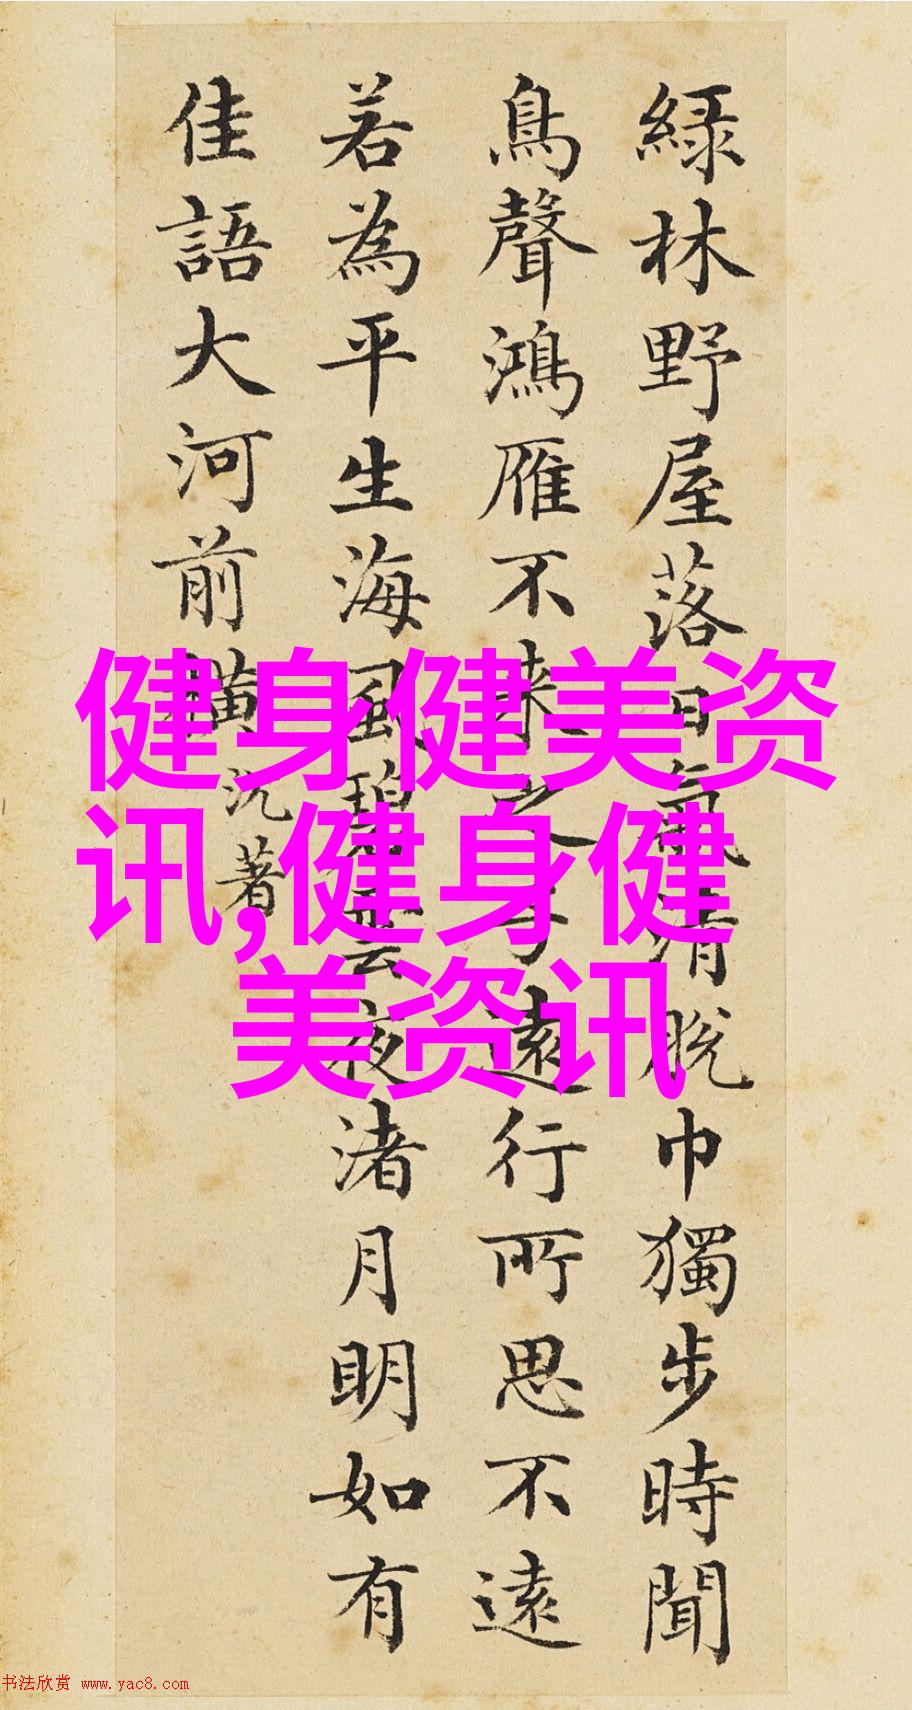 綠林野屋落日氣清脫巾獨步時聞
鳥聲鴻雁不來之子遠行所思不遠
若為平生海風碧雲夜渚月明如有
佳語大河前橫
沈著
健身健美资
讯,健身健
美资讯
书法欣赏 www.yac8.com